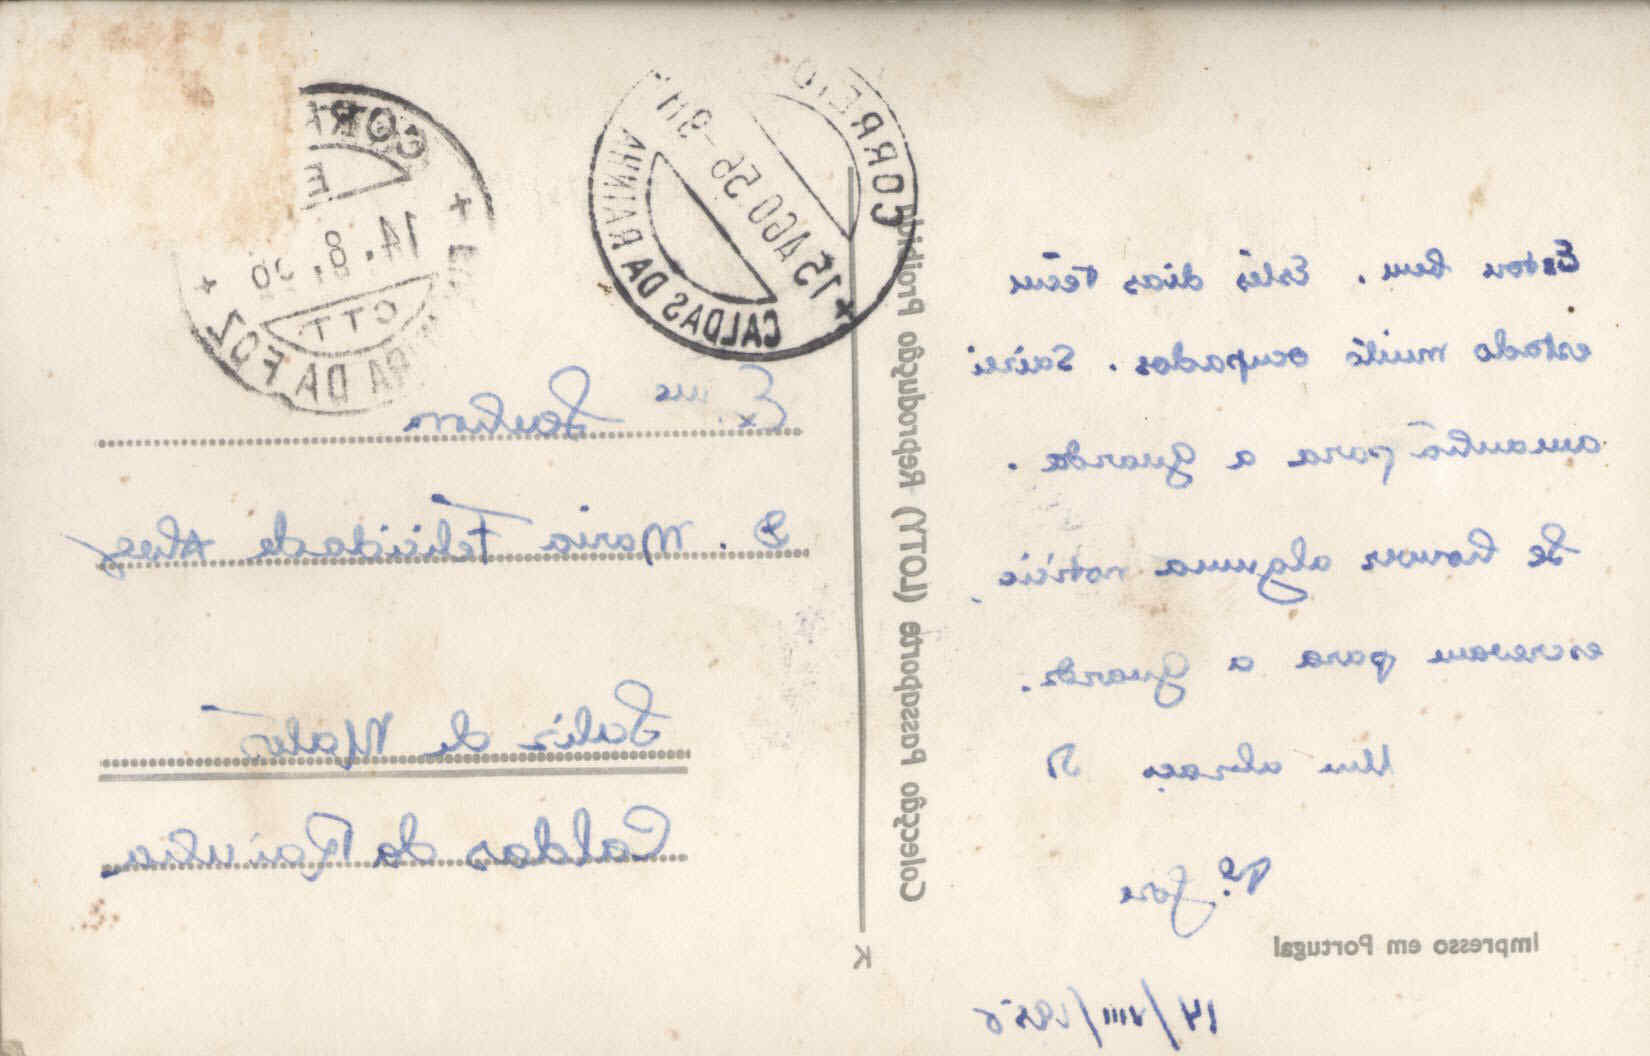 Estou bem. Estes dias têm
estado muito ocupados. Sairei
amanhã para a Guarda.
Se houver alguma notícia
escrevam para a Guarda.
Um abraço
Pe. José
14/VIII/1956
Impresso em Portugal
Colecção Passaporte (LOTY) Reprodução Proibida
K
CORREIO
15 AGO 56 - 9H
CALDAS DA RAINHA
14.8.56
CTT
DA FOZ
Ex.ma Senhora
D. Maria Felicidade Alves
Salir de Matos
Caldas da Rainha